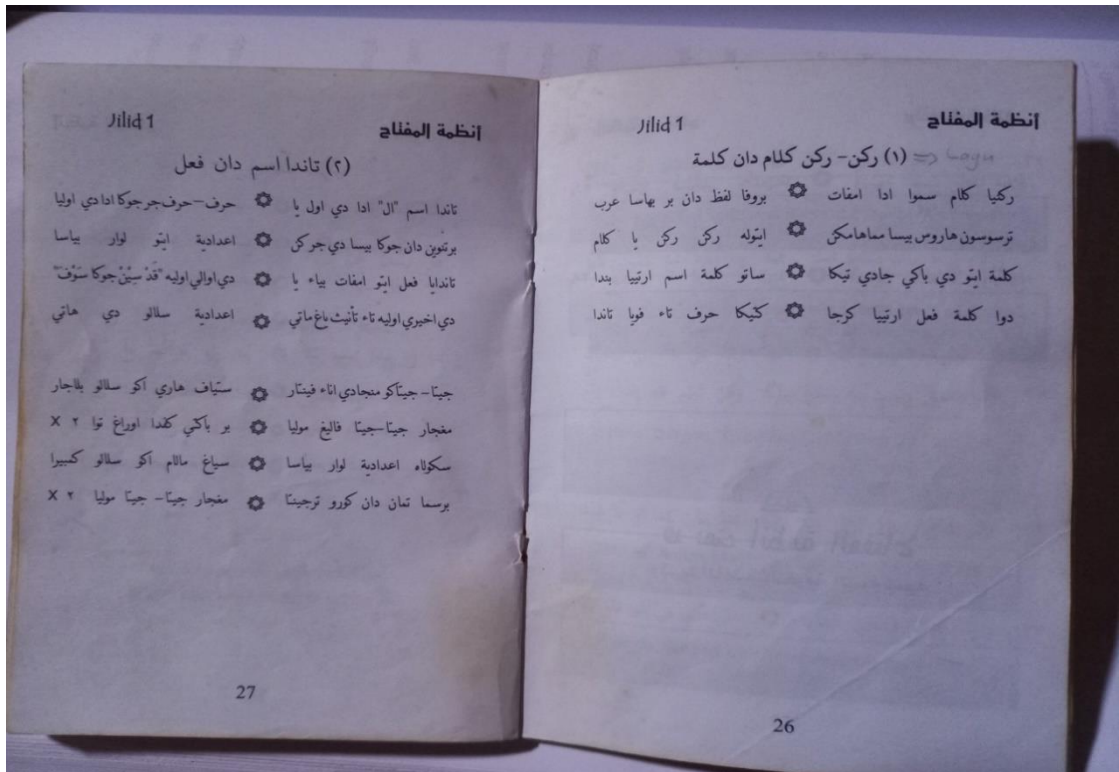 أنظمة المفتاح
Jilid 1
(١) ركن- ركن كلام دان كلمة
ركنيا كلام سموا ادا امفات ۞ بروفا لفظ دان بر بهاسا عرب
ترسوسون هاروس بيسا مماهامكن ۞ ايتوله ركن ركن يا كلام
كلمة ايتو دي باكي جادي تيكا ۞ ساتو كلمة اسم ارتييا بندا
دوا كلمة فعل ارتييا كرجا ۞ كتيكا حرف تاء فويا تاندا
26
أنظمة المفتاح
Jilid 1
(٢) تاندا اسم دان فعل
تاندا اسم "ال" ادا دي اول يا ۞ حرف-حرف جر جوكا ادا دي اوليا
برتنوين دان جوكا بيسا دي جر كن ۞ اعدادية ايتو لوار بياسا
تاندايا فعل ايتو امفات بياء يا ۞ دي اوالي اوليه "قَدْ سِيْنْ جوكا سَوْفَ"
دي اخيري اوليه تاء تأنيث ياغ ماتي ۞ اعدادية سلالو دي هاتي
جيتا-جيتاكو منجادي اناء فينتار ۞ ستياف هاري اكو سلالو بلاجار
مغجار جيتا-جيتا فاليغ موليا ۞ بر باكتي كفدا اوراغ توا ٢ X
سكولاه اعدادية لوار بياسا ۞ سياغ مالام اكو سلالو كمبيرا
برسما تمان دان كورو ترجينتا ۞ مغجار جيتا- جيتا موليا ٢ X
27